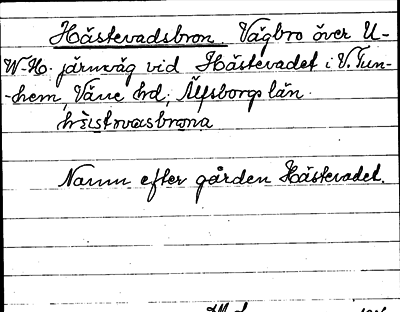 Hästevadsbron Vägbro över U-
W-H. järnväg vid Hästevadet i V. Tun-
-hem, Väne hd, Älfsborgs län.
Namn efter gården Hästevadet.